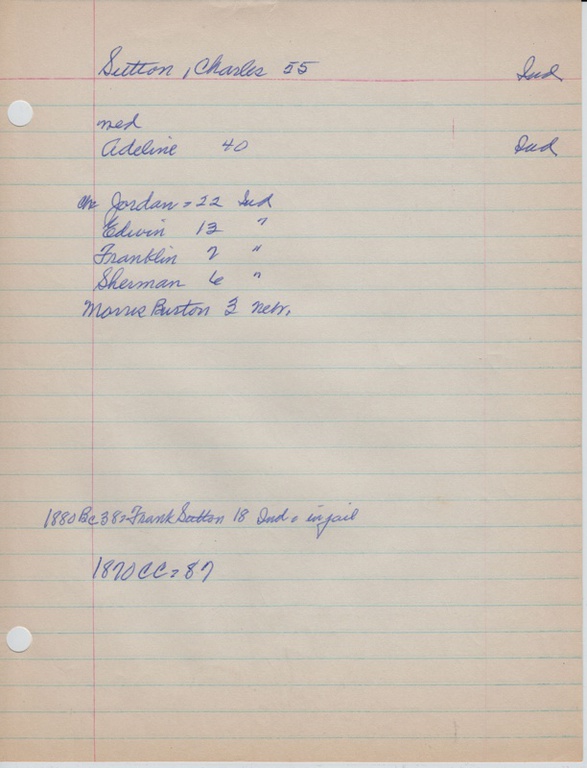 Sutton, Charles 55 Ind
med
Adeline 40 Ind
ch Jordan = 22 Ind
Edwin 13 "
Franklin 7 "
Sherman 6 "
Morris Burton 3 nebr.
1880 Bc 38 = Frank Sutton 18 Ind = in jail
1870 CC = 87